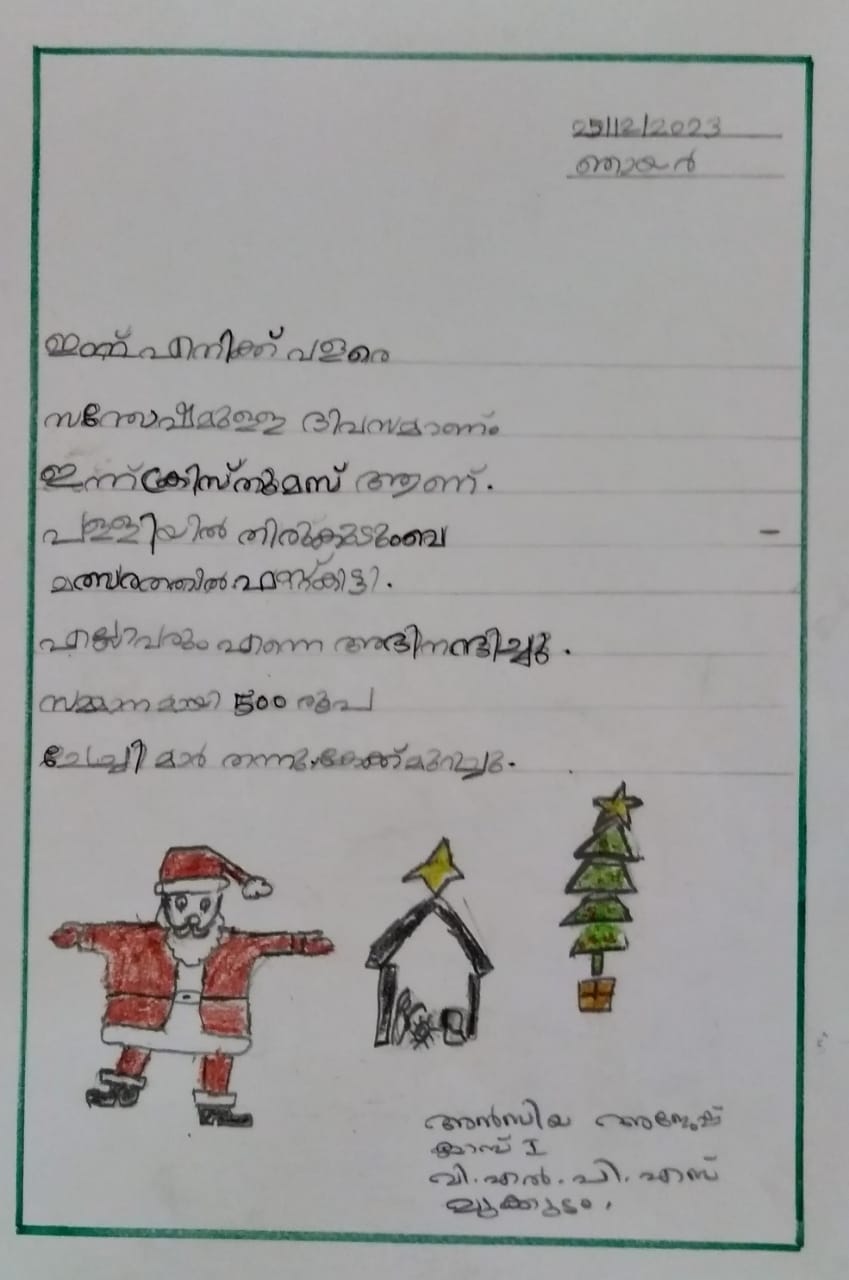 25/12/2023
ഞായർ
ഇന്ന് എനിക്ക് വളരെ
സന്തോഷമുള്ള ദിവസമാണ്
ഇന്ന് ക്രിസ്തുമസ് ആണ്.
പള്ളിയിൽ തിരുകുടുംബ
മത്സരത്തിൽ ഫസ്റ്റ് കിട്ടി.
എല്ലാവരും എന്നെ അഭിനന്ദിച്ചു.
സമ്മാനമായി 500 രൂപ
ചേച്ചിമാർ തന്നു. കേക്ക് മുറിച്ചു.
അൻസിയ
ക്ലാസ് I
വി.എൽ.പി.എസ്
മുക്കുടം.